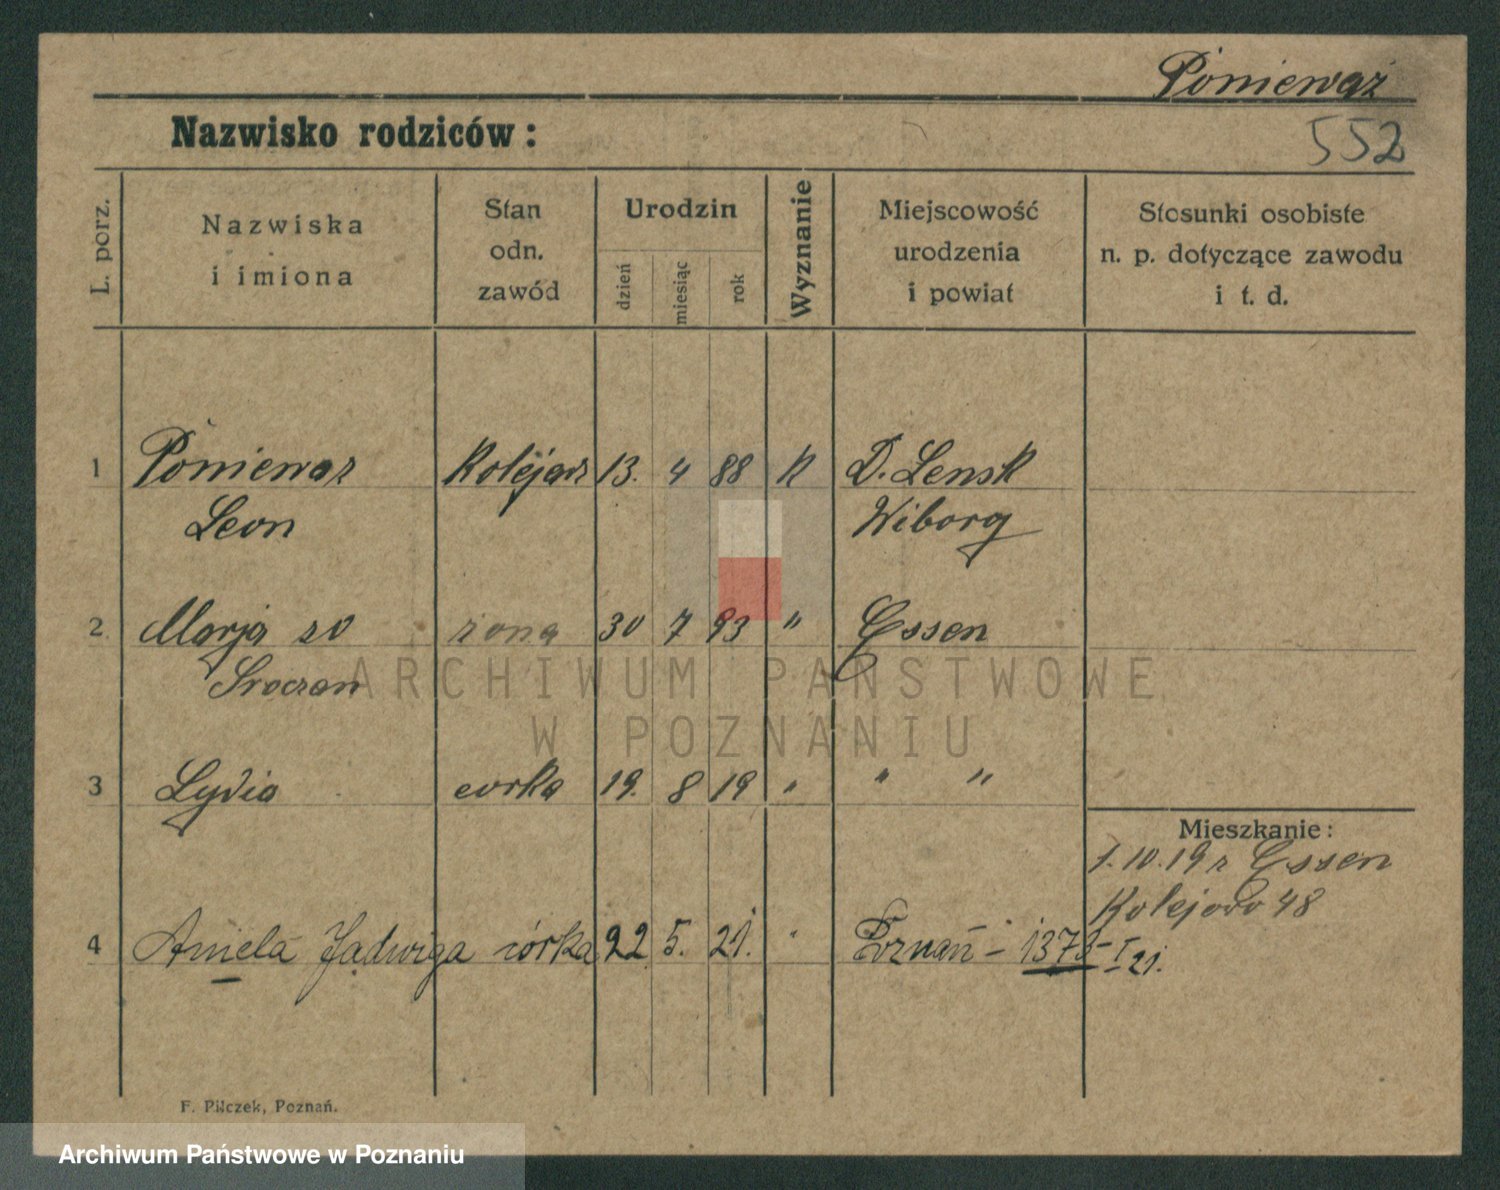 Poniewąż
552
Nazwisko rodziców:
L. porz.
Nazwiska
i imiona
Stan
odn.
zawód
Urodzin
dzień
miesiąc
rok
Wyznanie
Miejscowość
urodzenia
i powiat
Stosunki osobiste
n. p. dotyczące zawodu
i t. d.
1 Poniewaz Kolejarz 13. 4 88 K D. Lensk
Leon Wiborg
2 Marja zo żona 30 7 93 " Essen
Sroczan
ARCHIWUM PAŃSTWOWE
W POZNANIU
3 Lydia corka 19. 8 19 " " "
Mieszkanie:
1.10.19 z Essen
Kolejowo 48
4 Aniela Jadwiga córka 22 5. 21. " Poznań - 1373 - I 21.
F. Pilczek, Poznań.
Archiwum Państwowe w Poznaniu